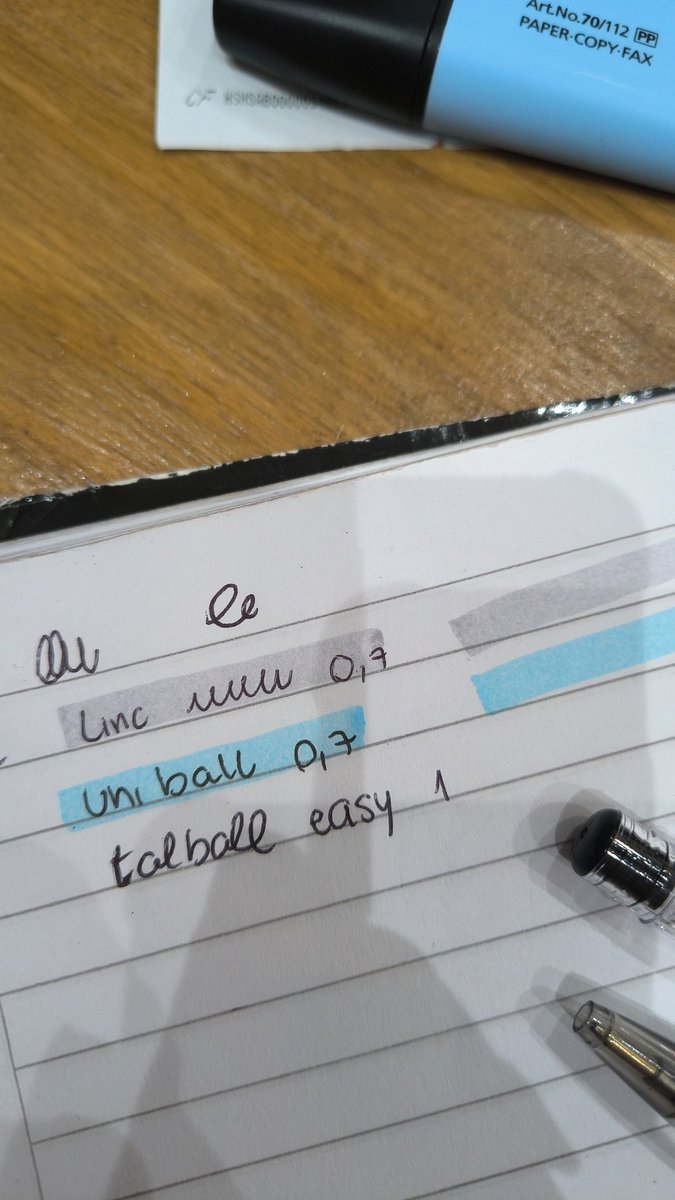 Art.No.70/112 PP
PAPER·COPY·FAX
CF
Linc 0,7
uni ball 0,7
talball easy 1